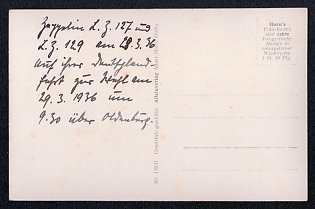 Zeppelin L.Z. 127 und
L.Z. 129 am 28.3.36
auf ihrer Deutschland-
fahrt zur Wahl am
29.3.1936 um
9.30 über Oldenburg.
Horn's
Foto-Karten
sind echte
Fotografische
Abzüge in
naturgetreuer
Wiedergabe